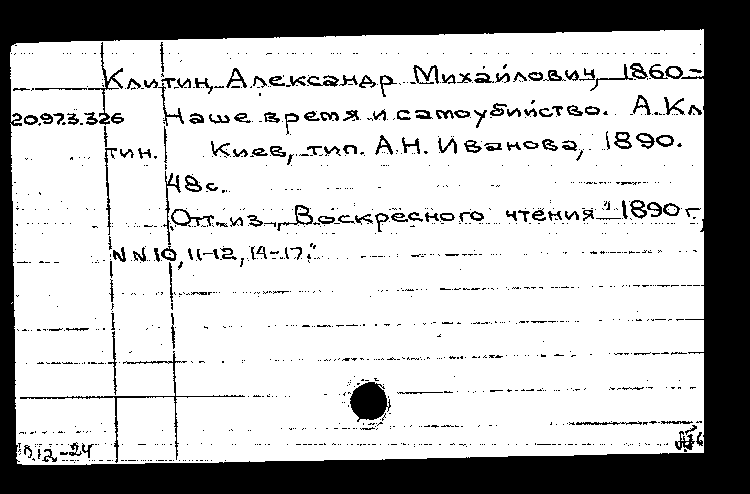 Клитин, Александр Михайлович, 1860-
20.973.326 Наше время и самоубийство. А. Кли
тин. Киев, тип. А.Н. Иванова, 1890.
48 с.
Отт. из „Воскресного чтения" 1890 г.,
N N 10, 11-12, 14-17."
12-24